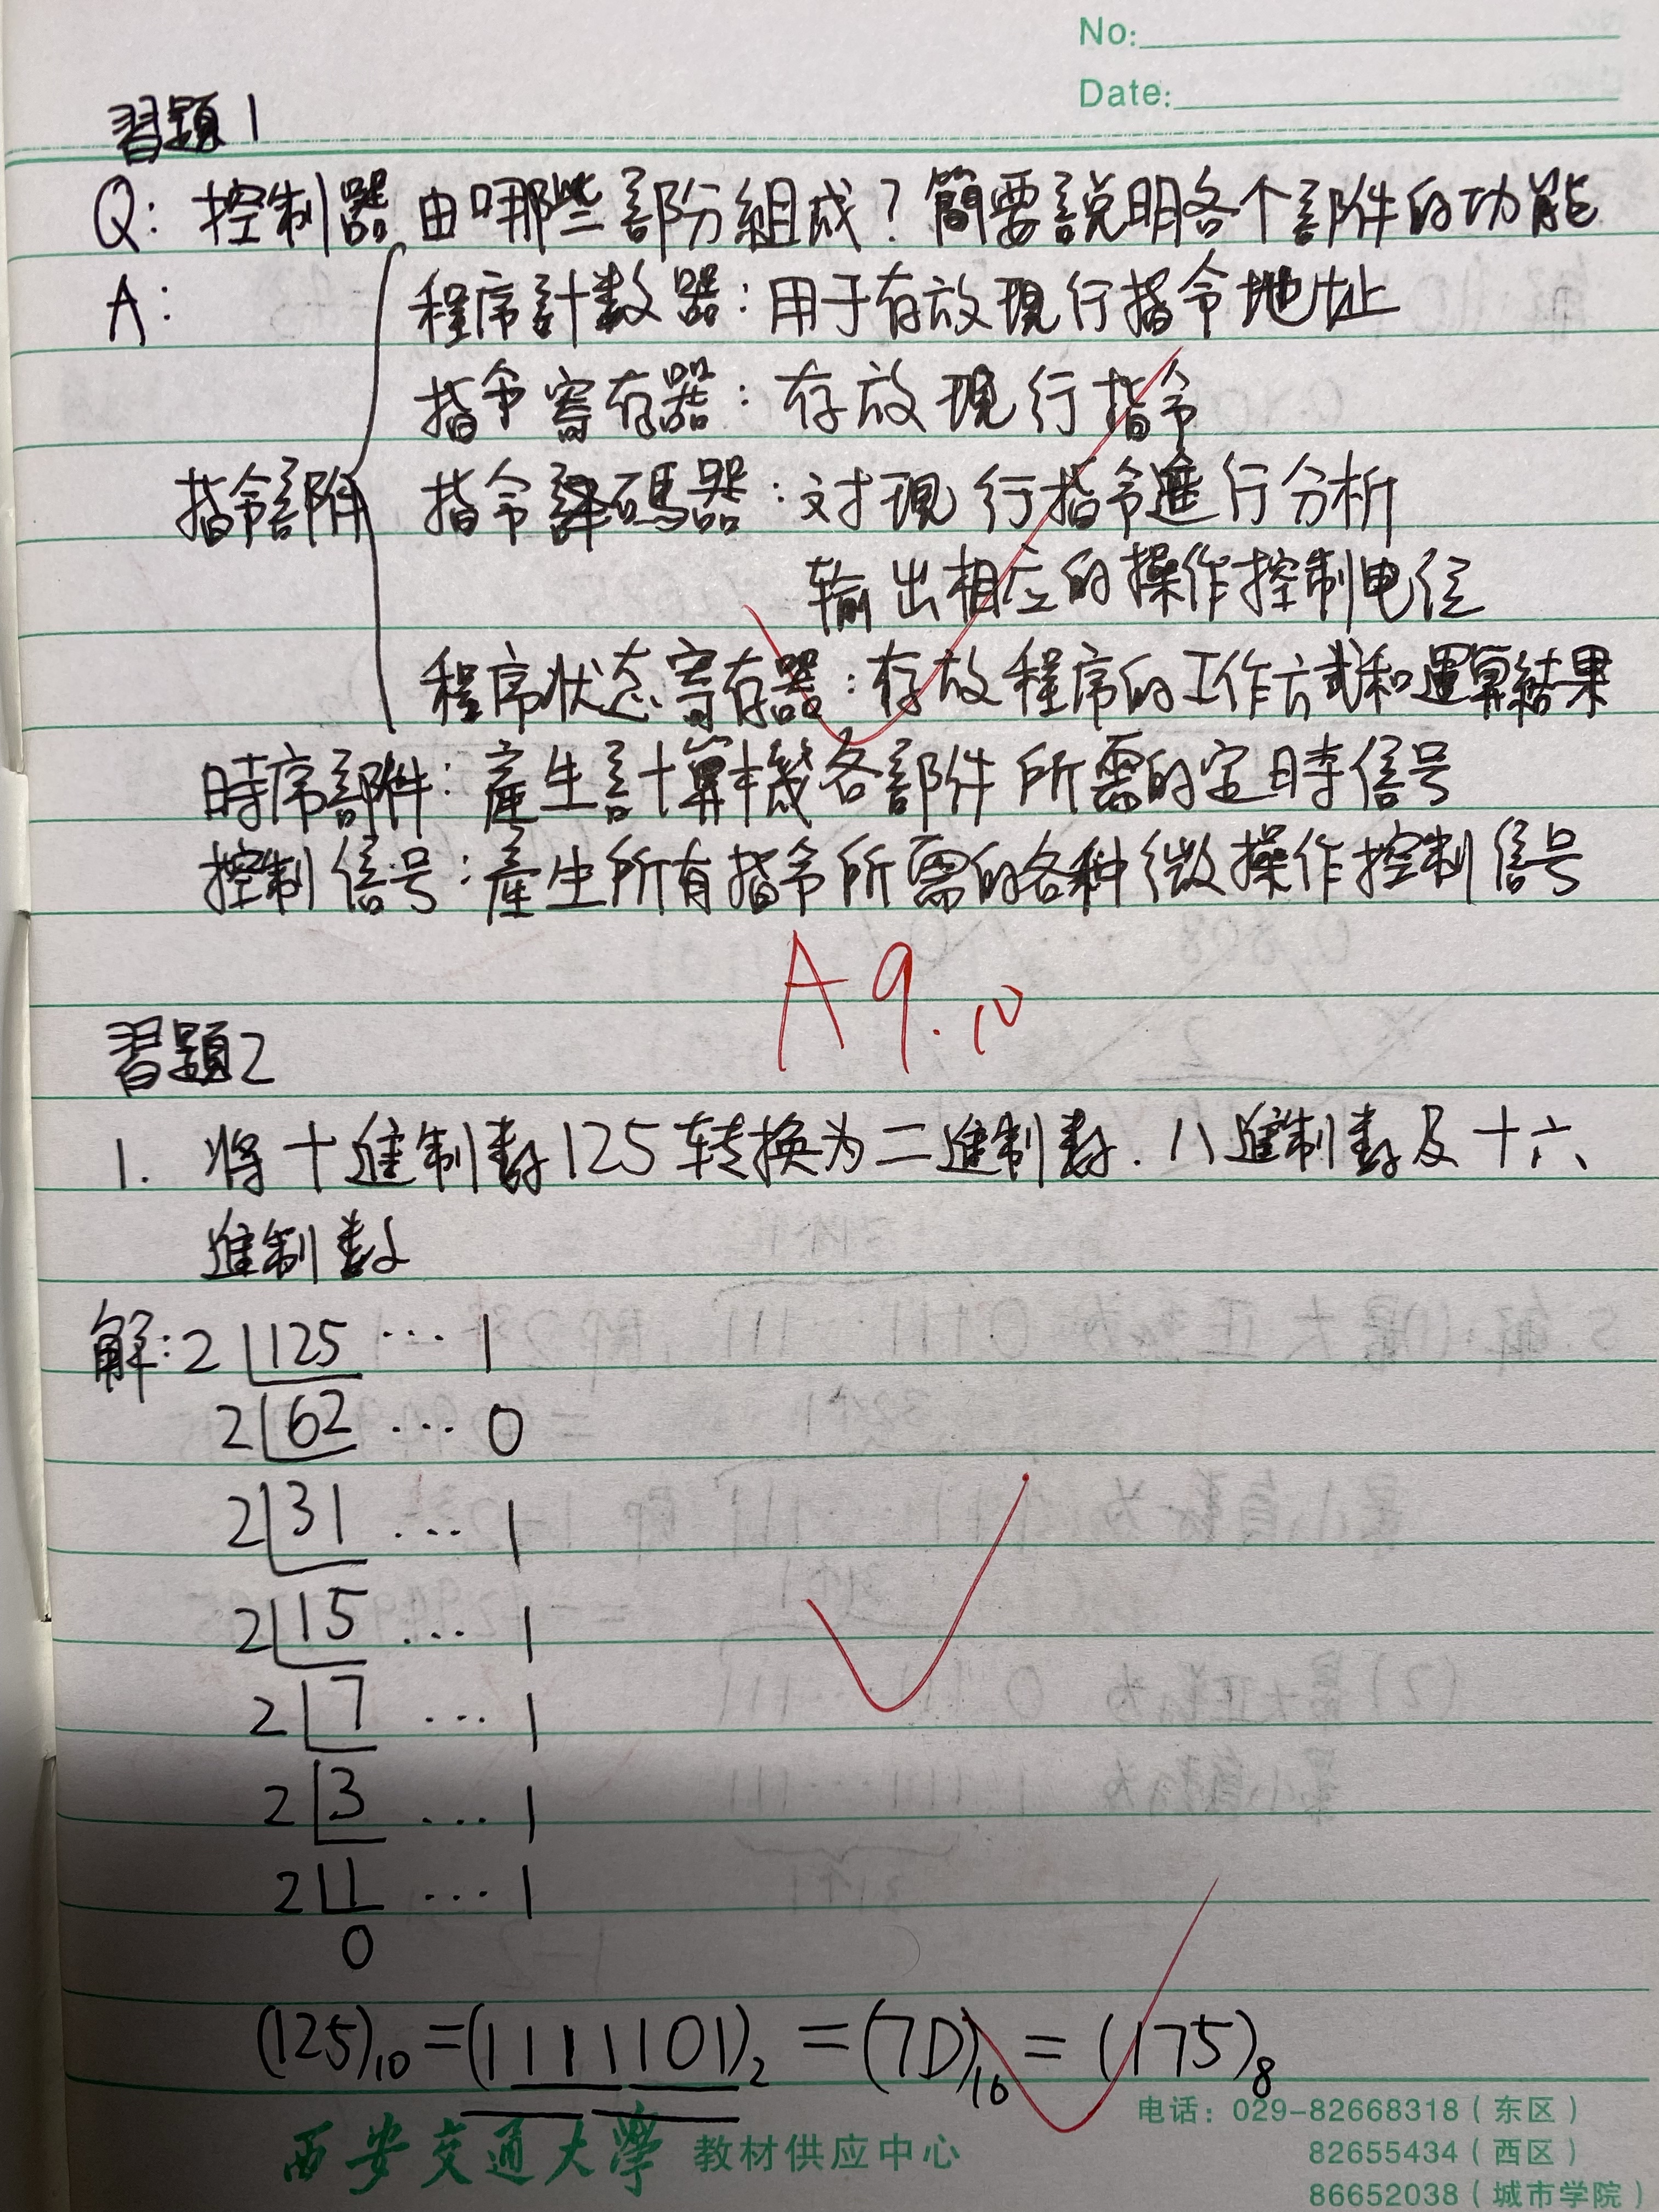 No:
Date:
習題1
Q: 控制器由哪些部份組成？簡要説明各个部件的功能
A:
程序計数器：用于存放現行指令地址
指令寄存器：存放現行指令
指令部件 指令譯碼器：对現行指令進行分析
输出相应的操作控制电位
程序状态寄存器：存放程序的工作方式和運算結果
時序部件：產生計算機各部件所需的定時信号
控制信号：產生所有指令所需的各种微操作控制信号
A 9.10
習題2
1. 将十進制数125转换为二進制数、八進制数及十六
進制数
解：2 125 … 1
2 62 … 0
2 31 … 1
2 15 … 1
2 7 … 1
2 3 … 1
2 1 … 1
0
(125)₁₀ = (1111101)₂ = (7D)₁₆ = (175)₈
西安交通大學 教材供应中心
电话：029-82668318（东区）
82655434（西区）
86652038（城市学院）